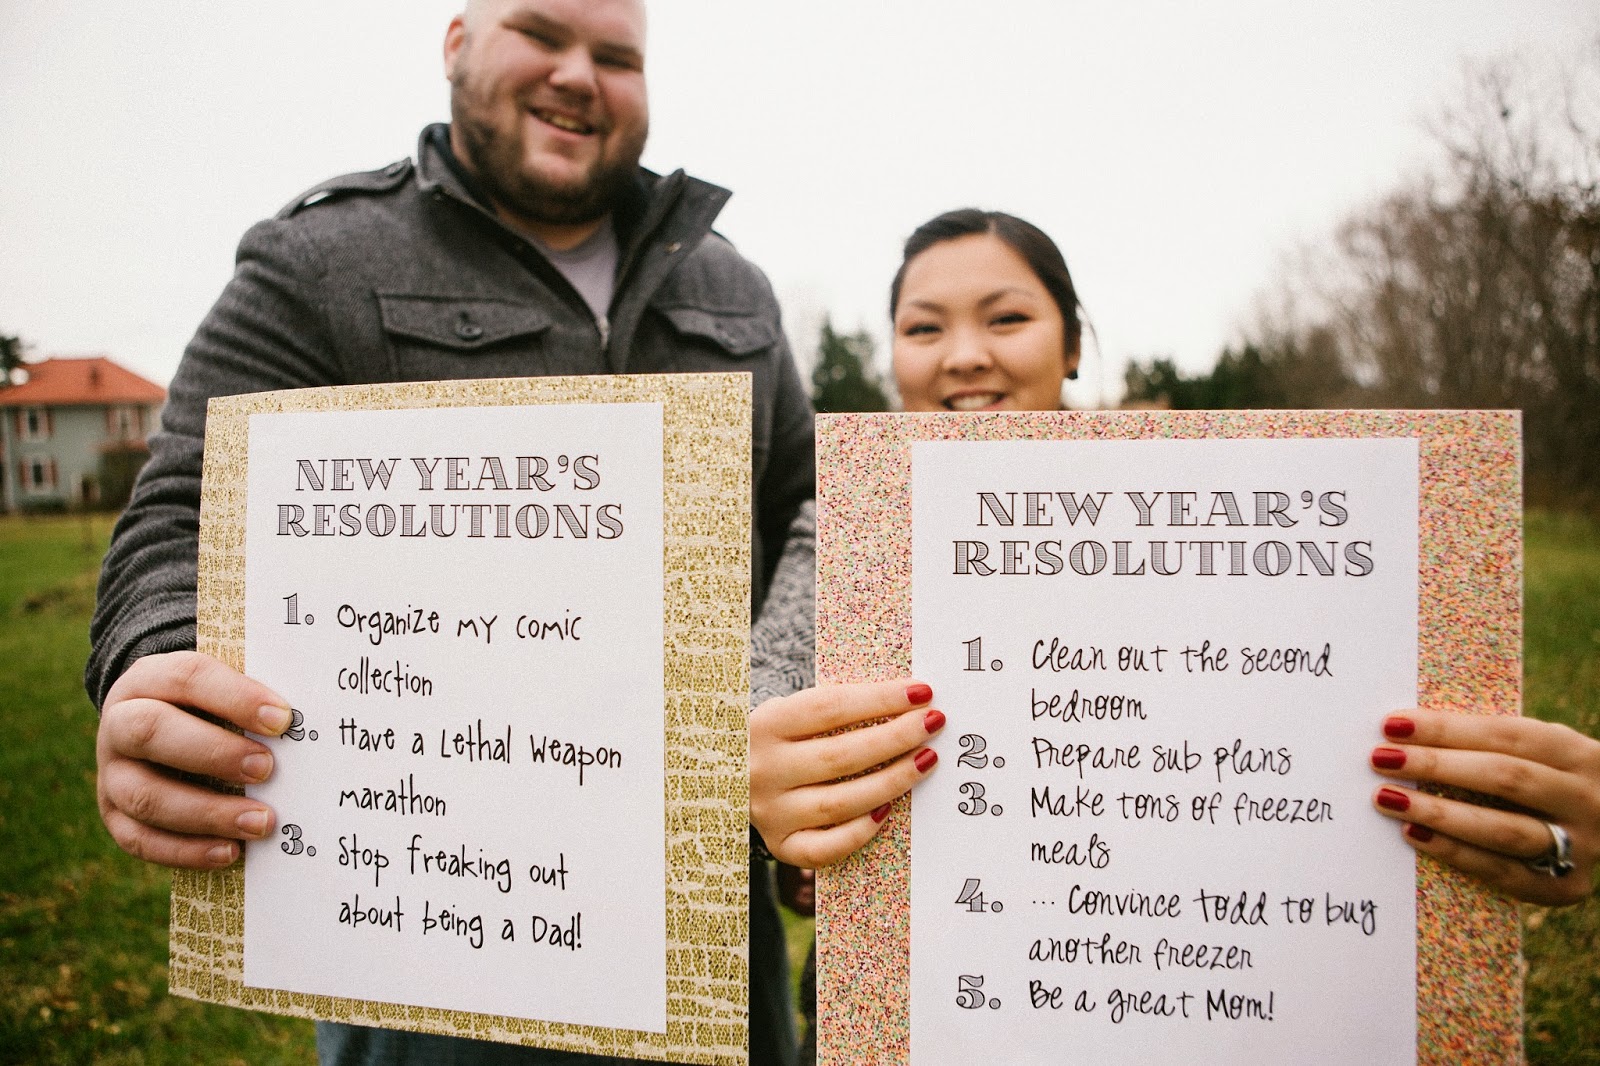 NEW YEAR'S
RESOLUTIONS
1. Organize my comic
collection
2. Have a Lethal Weapon
marathon
3. Stop freaking out
about being a Dad!
NEW YEAR'S
RESOLUTIONS
1. Clean out the second
bedroom
2. Prepare sub plans
3. Make tons of freezer
meals
4. ... Convince Todd to buy
another freezer
5. Be a great Mom!